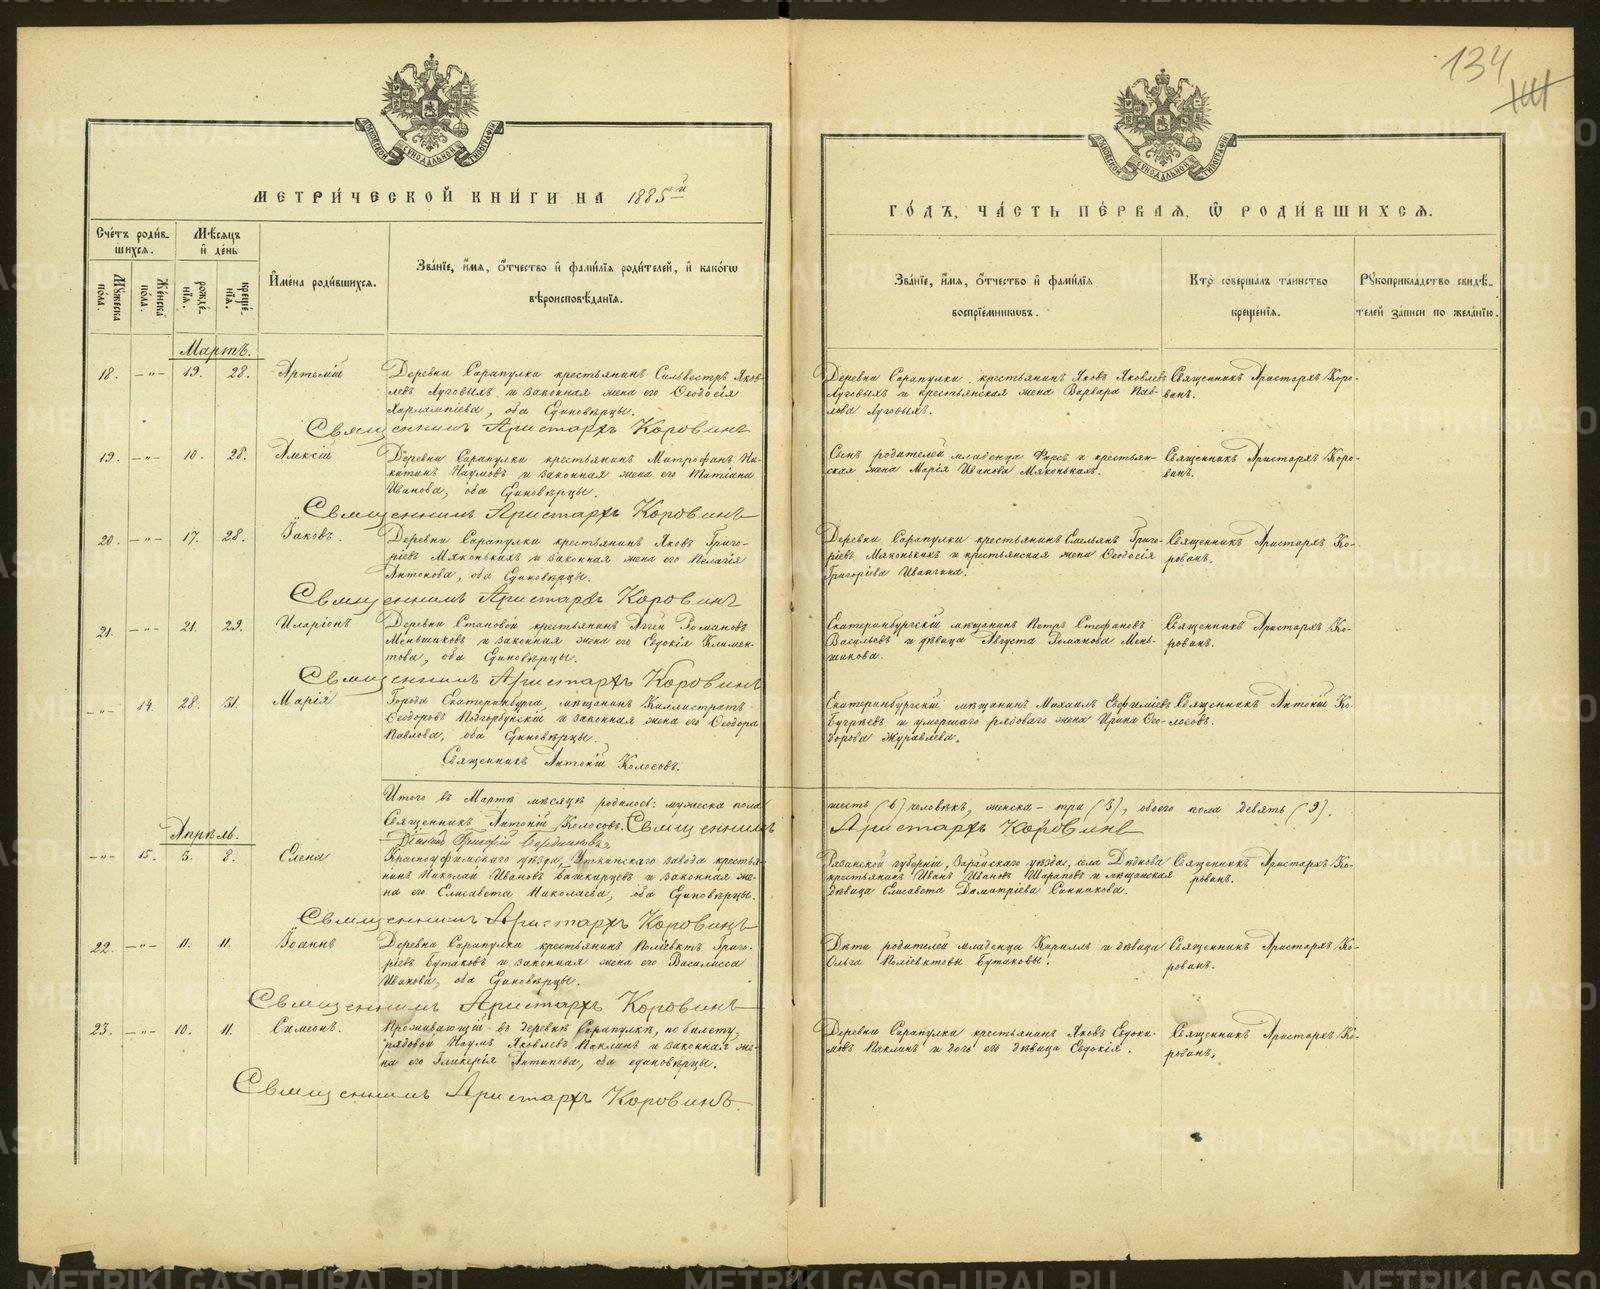 134
МОСКОВСКОЙ СѴНОДАЛЬНОЙ ТИПОГРАФІИ
МОСКОВСКОЙ СѴНОДАЛЬНОЙ ТИПОГРАФІИ
МЕТРИ́ЧЕСКОЙ КНИ́ГИ НА 1885й
ГО́ДЪ, ЧА́СТЬ ПЕ́РВАЯ, Ѡ РОДИ́ВШИХСЯ.
Сче́тъ роди́в-
шихся.
Мꙋжеска по́ла.
Же́нска по́ла.
Мѣ́сяцъ и де́нь
рожде́нїя.
креще́нїя.
Имена̀ роди́вшихся.
Зва́нїе, и́мя, о́тчество и фами́лїя роди́телей, и како́гѡ
вѣроисповѣ́данїя.
Зва́нїе, и́мя, о́тчество и фами́лїя
воспрїе́мникѡвъ.
Кто̀ соверша́лъ та́инство
креще́нїя.
Рꙋкоприкла́дство свидѣ́-
телей за́писи по жела́нїю.
Мартъ.
18. –"– 19. 28. Артемій
Деревни Сарапулки крестьянинъ Сильвестръ Яков-
левъ Луговыхъ и законная жена его Ѳеодосія
Харлампіева, оба Единовѣрцы.
Священникъ Аристархъ Коровинъ
Деревни Сарапулки крестьянинъ Яковъ Яковлевъ
Луговыхъ и крестьянская жена Варвара Пав-
лова Луговыхъ.
Священникъ Аристархъ Коро-
винъ.
19. –"– 10. 28. Алексій
Деревни Сарапулки крестьянинъ Митрофанъ Ни-
китинъ Наумовъ и законная жена его Татіана
Иванова, оба Единовѣрцы.
Священникъ Аристархъ Коровинъ
Сынъ родителей младенца Фирсъ и крестьян-
ская жена Марія Иванова Мяконькихъ.
Священникъ Аристархъ Коро-
винъ.
20. –"– 17. 28. Іаковъ.
Деревни Сарапулки крестьянинъ Яковъ Григо-
ріевъ Мяконькихъ и законная жена его Пелагія
Антонова, оба Единовѣрцы.
Священникъ Аристархъ Коровинъ
Деревни Сарапулки крестьянинъ Емельянъ Григо-
ріевъ Мяконькихъ и крестьянская жена Ѳеодосія
Григоріева Иванчина.
Священникъ Аристархъ Ко-
ровинъ.
21. –"– 21. 29. Иларіонъ
Деревни Становой крестьянинъ Аггей Романовъ
Меньшиковъ и законная жена его Евдокія Климен-
това, оба Единовѣрцы.
Священникъ Аристархъ Коровинъ
Екатеринбургскій мѣщанинъ Петръ Стефановъ
Васильевъ и дѣвица Августа Романова Мень-
шикова.
Священникъ Аристархъ Ко-
ровинъ.
–"– 14. 28. 31. Марія
Города Екатеринбурга, мѣщанинъ Каллистратъ
Ѳеодоровъ Подгорбунскій и законная жена его Ѳеодора
Павлова, оба Единовѣрцы.
Священникъ Антоній Колосовъ.
Екатеринбургскій мѣщанинъ Михаилъ Евфиміевъ
и умершаго рядоваго жена Ирина Ѳео-
дорова Журавлева.
Священникъ Антоній Ко-
лосовъ.
Итого въ Мартѣ мѣсяцѣ родилось: мужеска пола
шесть (6) человѣкъ, женска – три (3), обоего пола девять (9).
Священникъ Антоній Колосовъ. Священникъ
Аристархъ Коровинъ
Апрѣль.
–"– 15. 5. 8. Елена
Красноуфимскаго уѣзда, Уткинскаго завода крестья-
нинъ Николай Ивановъ Башкирцевъ и законная же-
на его Елисавета Николаева, оба Единовѣрцы.
Священникъ Аристархъ Коровинъ
Рязанской губерніи, Зарайскаго уѣзда, села Дѣднова
крестьянинъ Иванъ Ивановъ Шараповъ и мѣщанская
дѣвица Елисавета Димитріева Санникова.
Священникъ Аристархъ Ко-
ровинъ.
22. –"– 11. 11. Іоаннъ
Деревни Сарапулки крестьянинъ Поліевктъ Григо-
ріевъ Бутаковъ и законная жена его Василисса
Иванова, оба Единовѣрцы.
Священникъ Аристархъ Коровинъ
Дѣти родителей младенца Кириллъ и дѣвица
Ольга Поліевктовы Бутаковы.
Священникъ Аристархъ Ко-
ровинъ.
23. –"– 10. 11. Симеонъ.
Проживающій въ деревнѣ Сарапулкѣ, по билету,
рядовой Наумъ Яковлевъ Паклинъ и законная же-
на его Гликерія Антипова, оба единовѣрцы.
Священникъ Аристархъ Коровинъ.
Деревни Сарапулки крестьянинъ Яковъ Евдоки-
мовъ Паклинъ и дочь его дѣвица Евдокія.
Священникъ Аристархъ Ко-
ровинъ.
METRIKI.GASO-URAL.RU